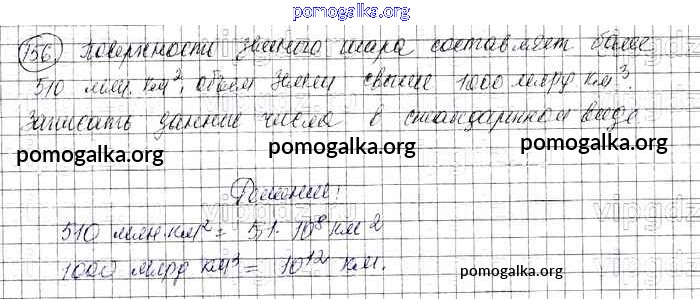 pomogalka.org
156. Поверхности земного шара составляет более
510 млн. км², объем Земли свыше 1000 млрд км³.
Записать данные числа в стандартном виде
pomogalka.org pomogalka.org pomogalka.org
Решение:
510 млн. км² = 5,1 · 10⁸ км 2
1000 млрд км³ = 10¹² км.
pomogalka.org